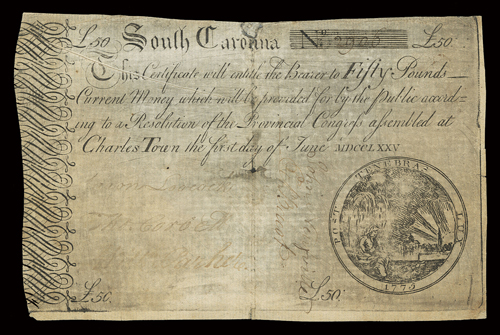 £50. South Carolina No. £50.
This Certificate will entitle the Bearer to Fifty Pounds
Current Money which will be provided for by the Public accord-
ing to a Resolution of the Provincial Congress assembled at
Charles Town the first day of June MDCCLXXV
POST TENEBRAS LUX
1775
£50. £50.